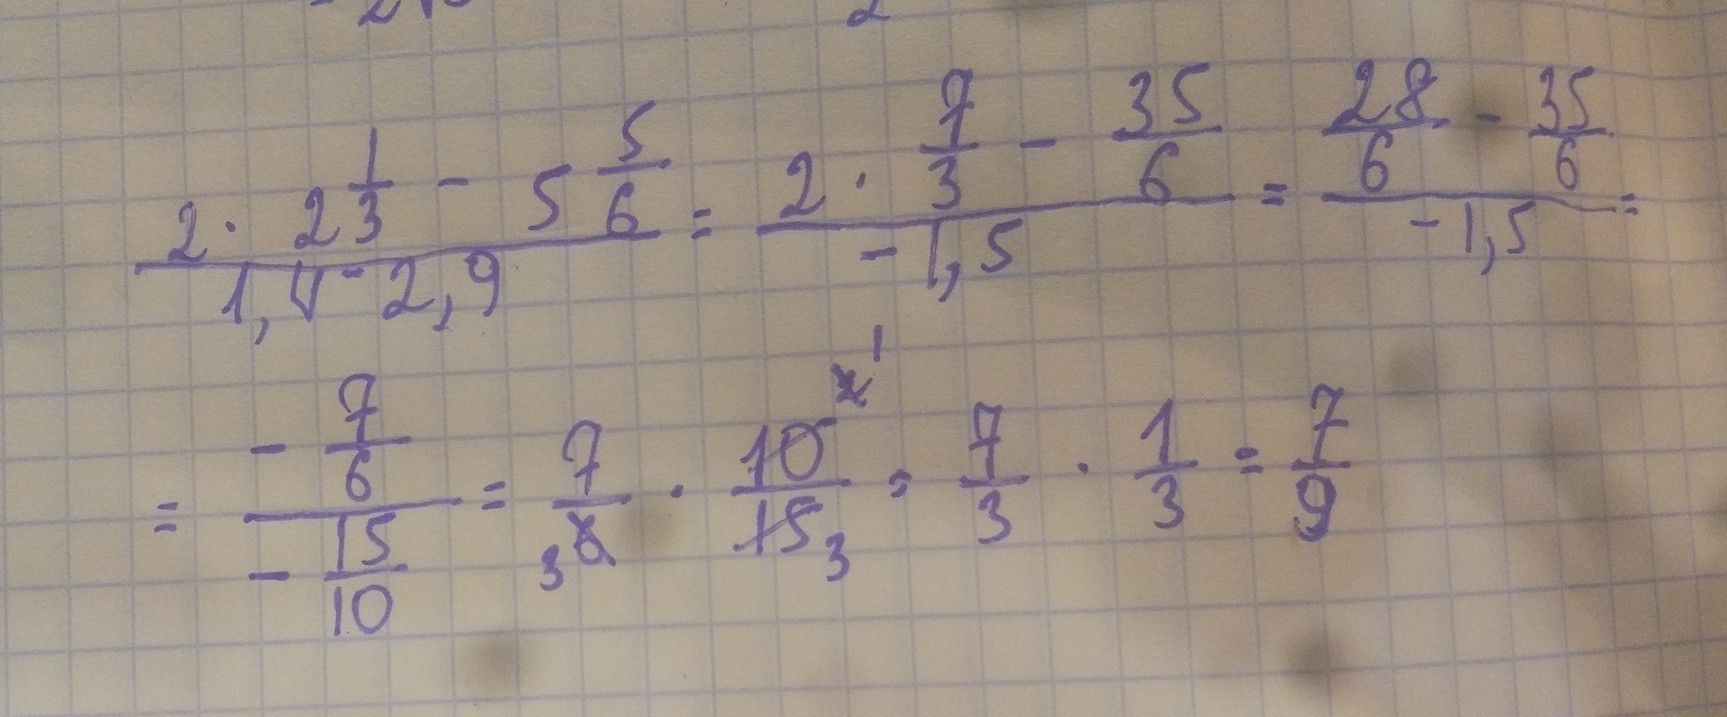 (2 · 2 1/3 - 5 5/6) / (1,4 - 2,9) = (2 · 7/3 - 35/6) / (-1,5) = (28/6 - 35/6) / (-1,5) =
= (- 7/6) / (- 15/10) = 7/6 3 · 10/15 2 1 3 = 7/3 · 1/3 = 7/9